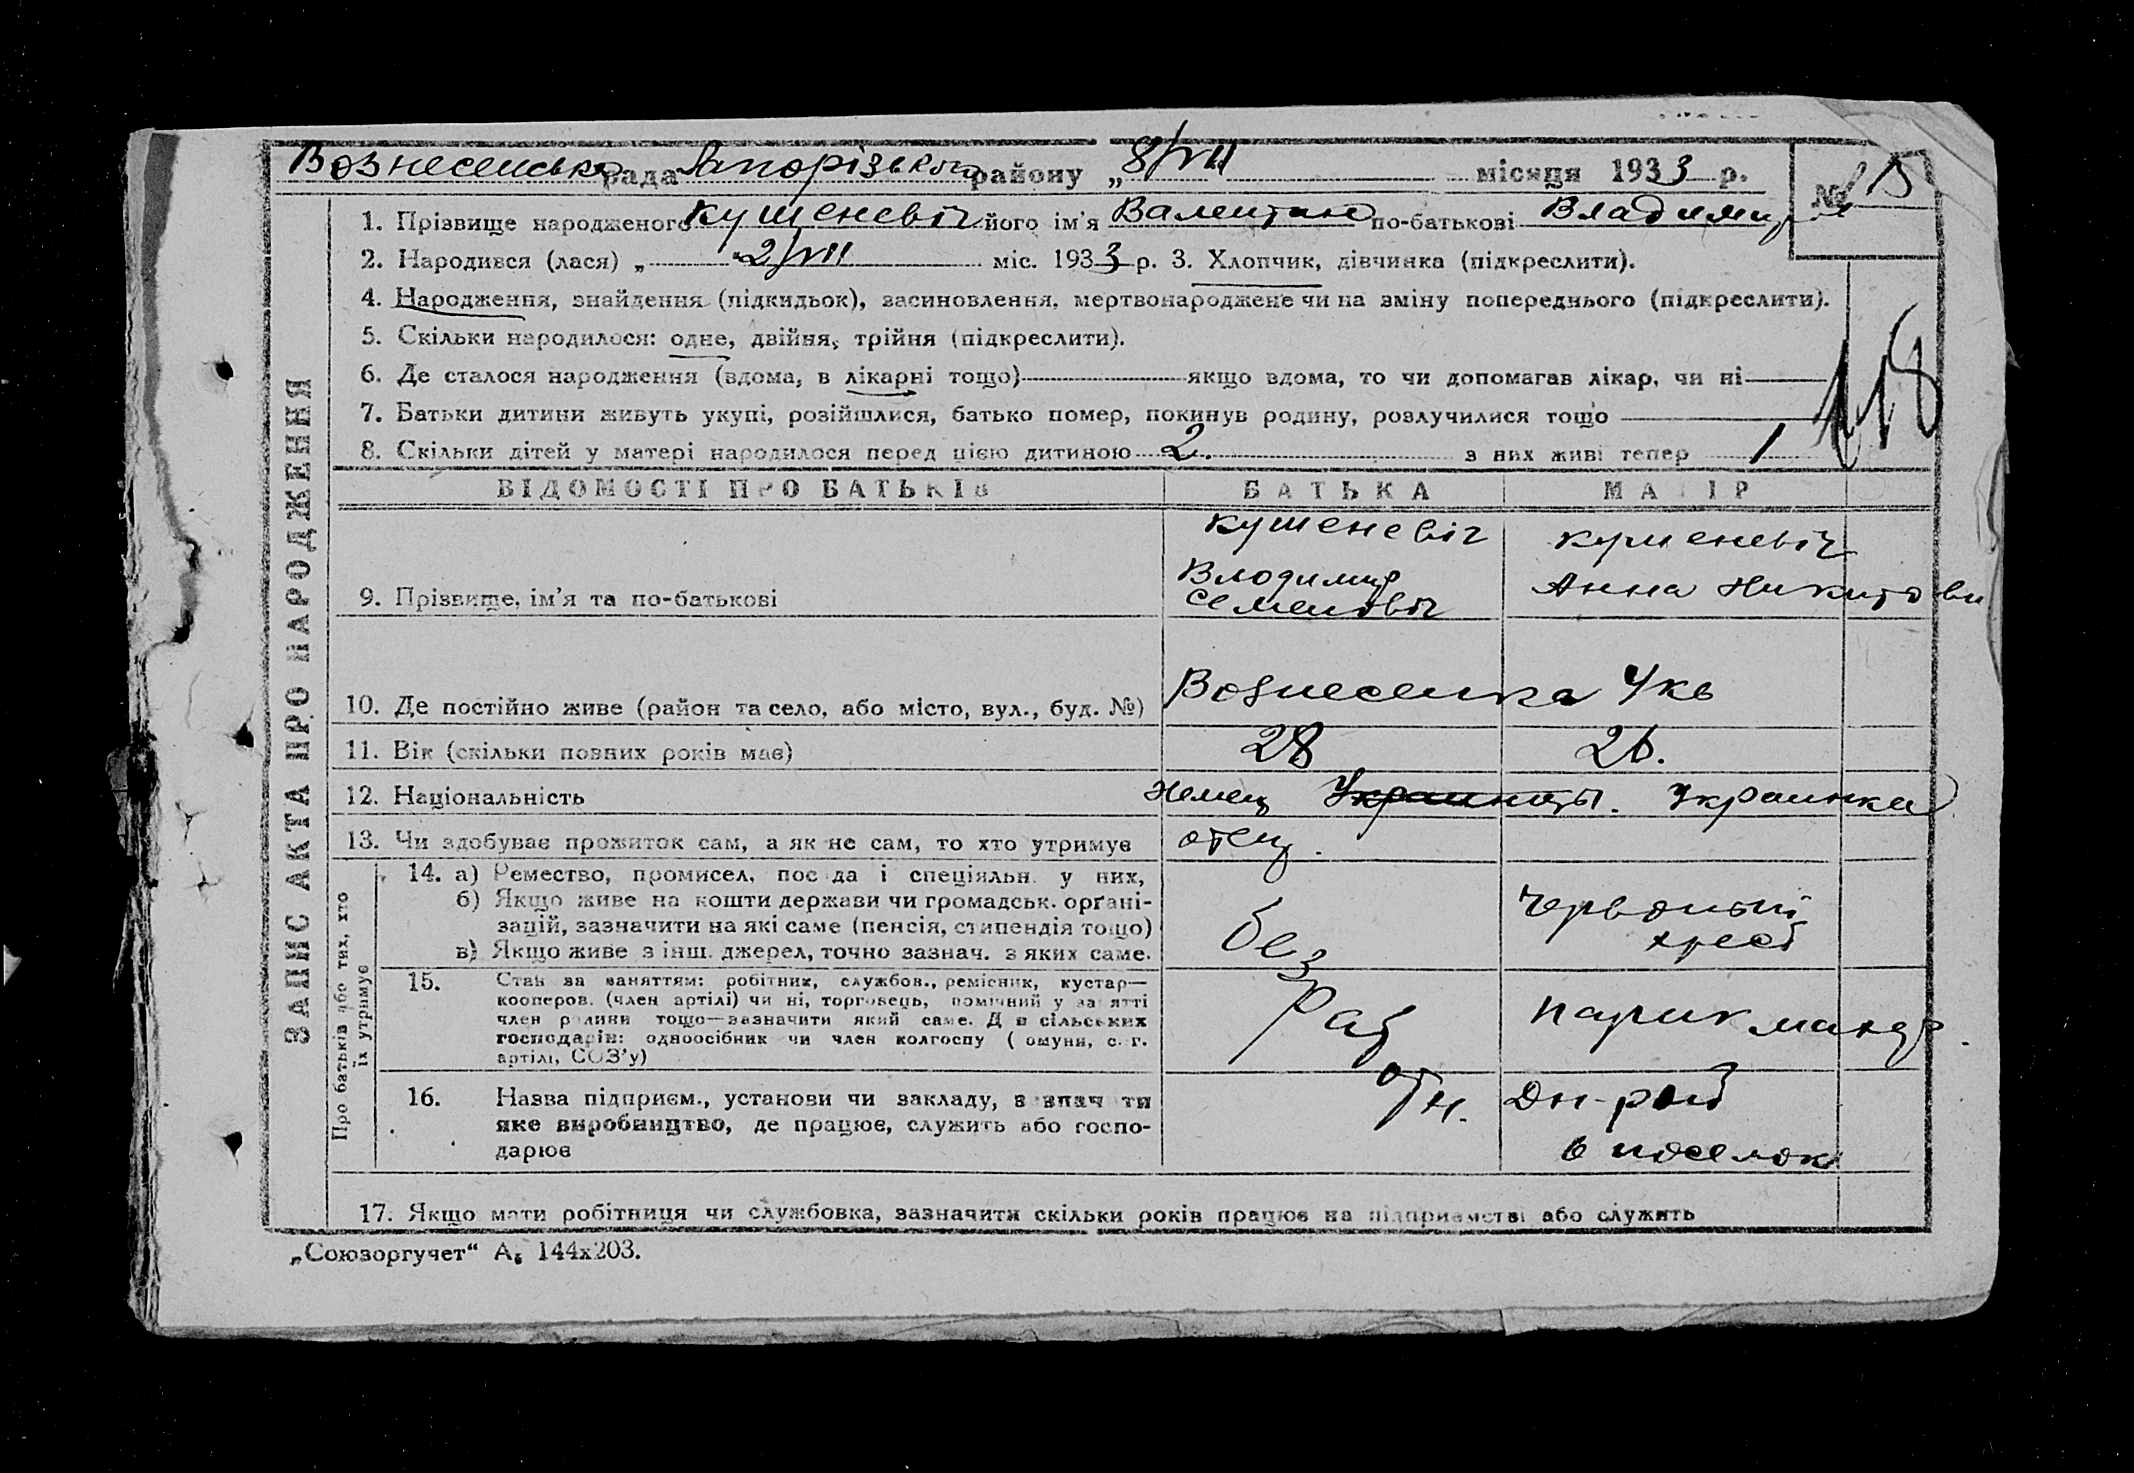 Вознесенська рада Запорізького району „ 8/VII місяця 1933 р. №
1. Прізвище народженого Кушеневіч його ім’я Валентин по-батькові Владимир
2. Народився (лася) „ 2/VII міс. 1933 р. 3. Хлопчик, дівчинка (підкреслити).
4. Народження, знайдення (підкидьок), засиновлення, мертвонароджене чи на зміну попереднього (підкреслити).
5. Скільки народилося: одне, двійня, трійня (підкреслити).
6. Де сталося народження (вдома, в лікарні тощо) якщо вдома, то чи допомагав лікар, чи ні
7. Батьки дитини живуть укупі, розійшлися, батько помер, покинув родину, розлучилися тощо
118
8. Скільки дітей у матері народилося перед цією дитиною 2. з них живі тепер 1
ЗАПИС АКТА ПРО НАРОДЖЕННЯ
ВІДОМОСТІ ПРО БАТЬКІВ БАТЬКА МАТІР
9. Прізвище, ім’я та по-батькові
Кушеневіч
Владимир
Семеновіч
Кушеневіч
Анна Никитовн
10. Де постійно живе (район та село, або місто, вул., буд. №) Вознесенка
11. Вік (скільки повних років має) 28 26.
12. Національність Немец Украинцы. Украинка
13. Чи здобуває прожиток сам, а як не сам, то хто утримує отец.
Про батьків або тих, хто
їх утримує
14. а) Ремество, промисел, посада і спеціяльн. у них,
б) Якщо живе на кошти держави чи громадськ. орґані-
зацій, зазначити на які саме (пенсія, стипендія тощо)
в) Якщо живе з інш. джерел, точно зазнач. з яких саме.
без
Червоный
крест
15. Стан за заняттям: робітник, службов., ремісник, кустар—
кооперов. (член артілі) чи ні, торговець, помічний у занятті
член родини тощо—зазначити який саме. Для сільських
господарів: одноосібник чи член колгоспу (комуни, с. г.
артілі, СОЗ’у)
Раб
парикмахер.
16. Назва підприєм., установи чи закладу, зазначити
яке виробництво, де працює, служить або госпо-
дарює
отн.
6 поселок
17. Якщо мати робітниця чи службовка, зазначити скільки років працює на підприємстві або служить
„Союзоргучет“ А₅ 144х203.